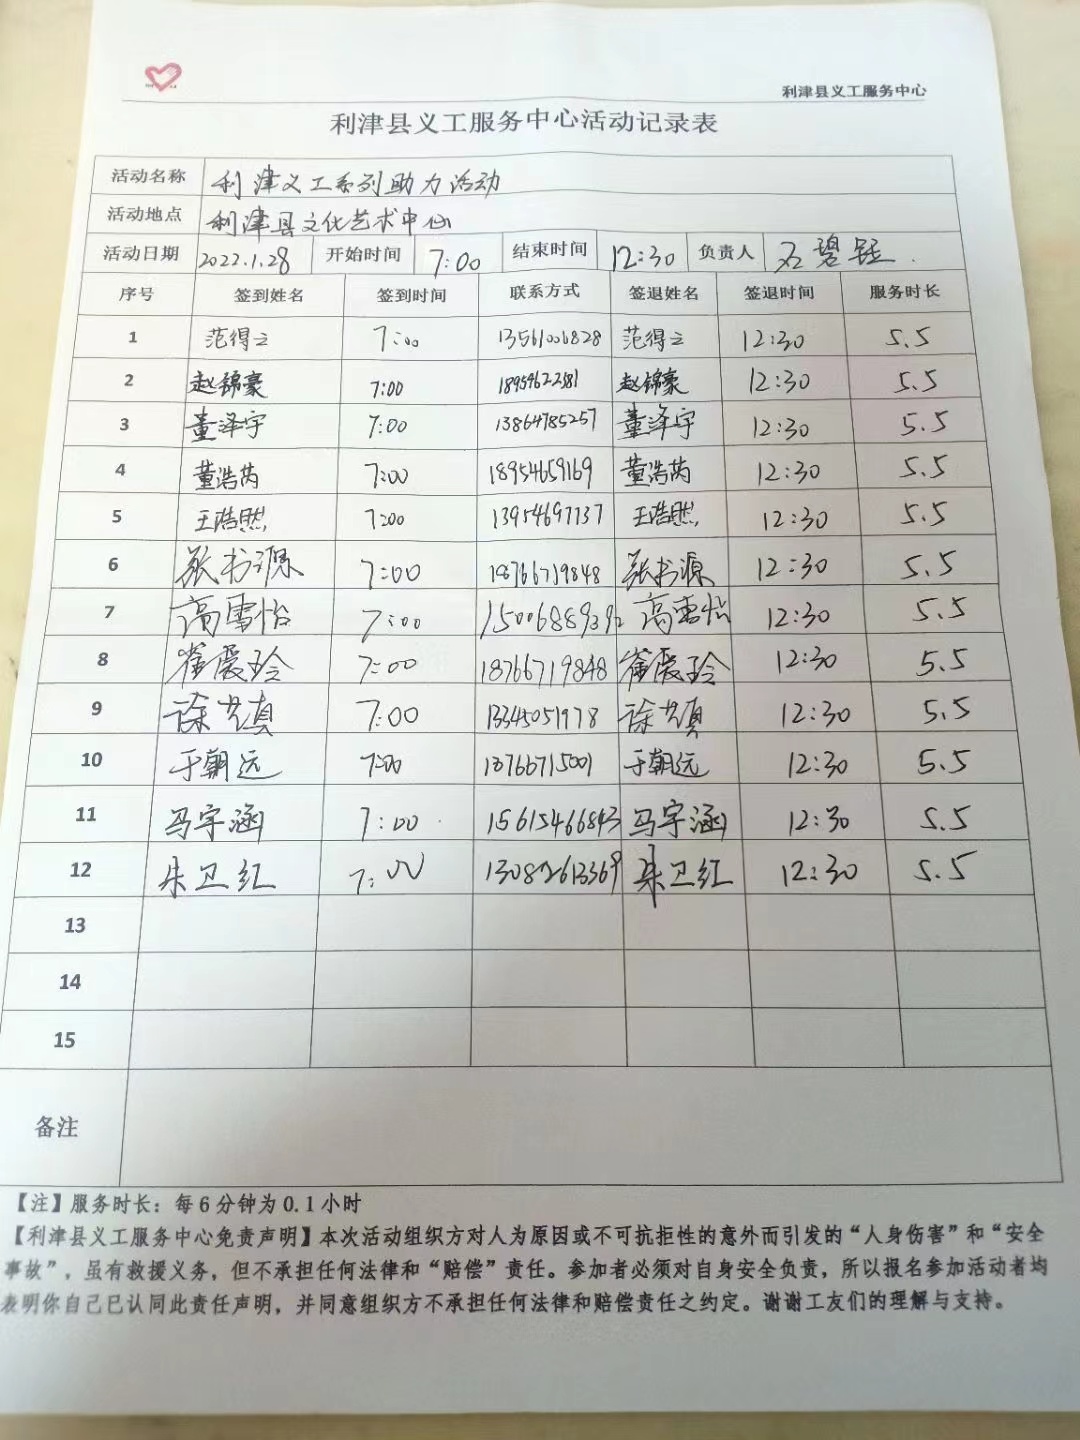 利津县义工服务中心
利津县义工服务中心活动记录表
活动名称 利津义工系列助力活动
活动地点 利津县文化艺术中心
活动日期 2022.1.28 开始时间 7:00 结束时间 12:30 负责人 石碧钰
序号 签到姓名 签到时间 联系方式 签退姓名 签退时间 服务时长
1 范得立 7:00 13561006828 范得立 12:30 5.5
2 赵锦豪 7:00 18954622581 赵锦豪 12:30 5.5
3 董泽宇 7:00 13864785257 董泽宇 12:30 5.5
4 董浩芮 7:00 18954659169 董浩芮 12:30 5.5
5 王浩然 7:00 13954697137 王浩然 12:30 5.5
6 张书源 7:00 18766719848 张书源 12:30 5.5
7 高雪怡 7:00 15006889392 高雪怡 12:30 5.5
8 崔爱玲 7:00 18766719848 崔爱玲 12:30 5.5
9 徐艺真 7:00 13345051978 徐艺真 12:30 5.5
10 于朝远 7:00 18766715001 于朝远 12:30 5.5
11 马宇涵 7:00 15615466843 马宇涵 12:30 5.5
12 朱卫红 7:00 13082613369 朱卫红 12:30 5.5
13
14
15
备注
【注】服务时长：每6分钟为0.1小时
【利津县义工服务中心免责声明】本次活动组织方对人为原因或不可抗拒性的意外而引发的“人身伤害”和“安全
事故”，虽有救援义务，但不承担任何法律和“赔偿”责任。参加者必须对自身安全负责，所以报名参加活动者均
表明你自己已认同此责任声明，并同意组织方不承担任何法律和赔偿责任之约定。谢谢工友们的理解与支持。